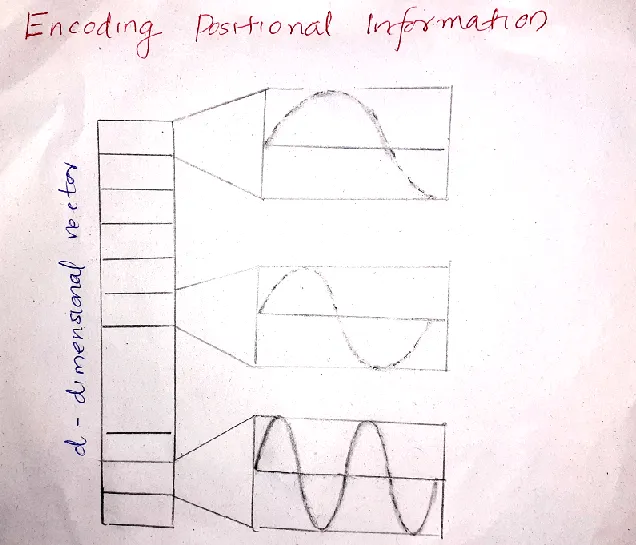 Encoding Positional Information
d - dimensional vector